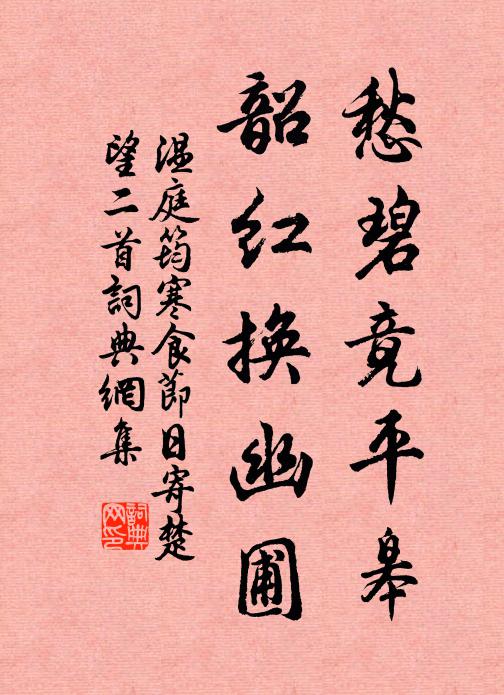 愁碧竟平皋
韶紅換幽圃
溫庭筠寒食節日寄楚
望二首詞典網集
詞典
网印